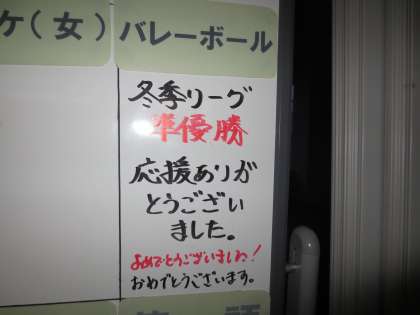 ケ(女)
バレーボール
冬季リーグ
準優勝
応援ありが
とうござい
ました。
おめでとうございましね!
おめでとうございます。